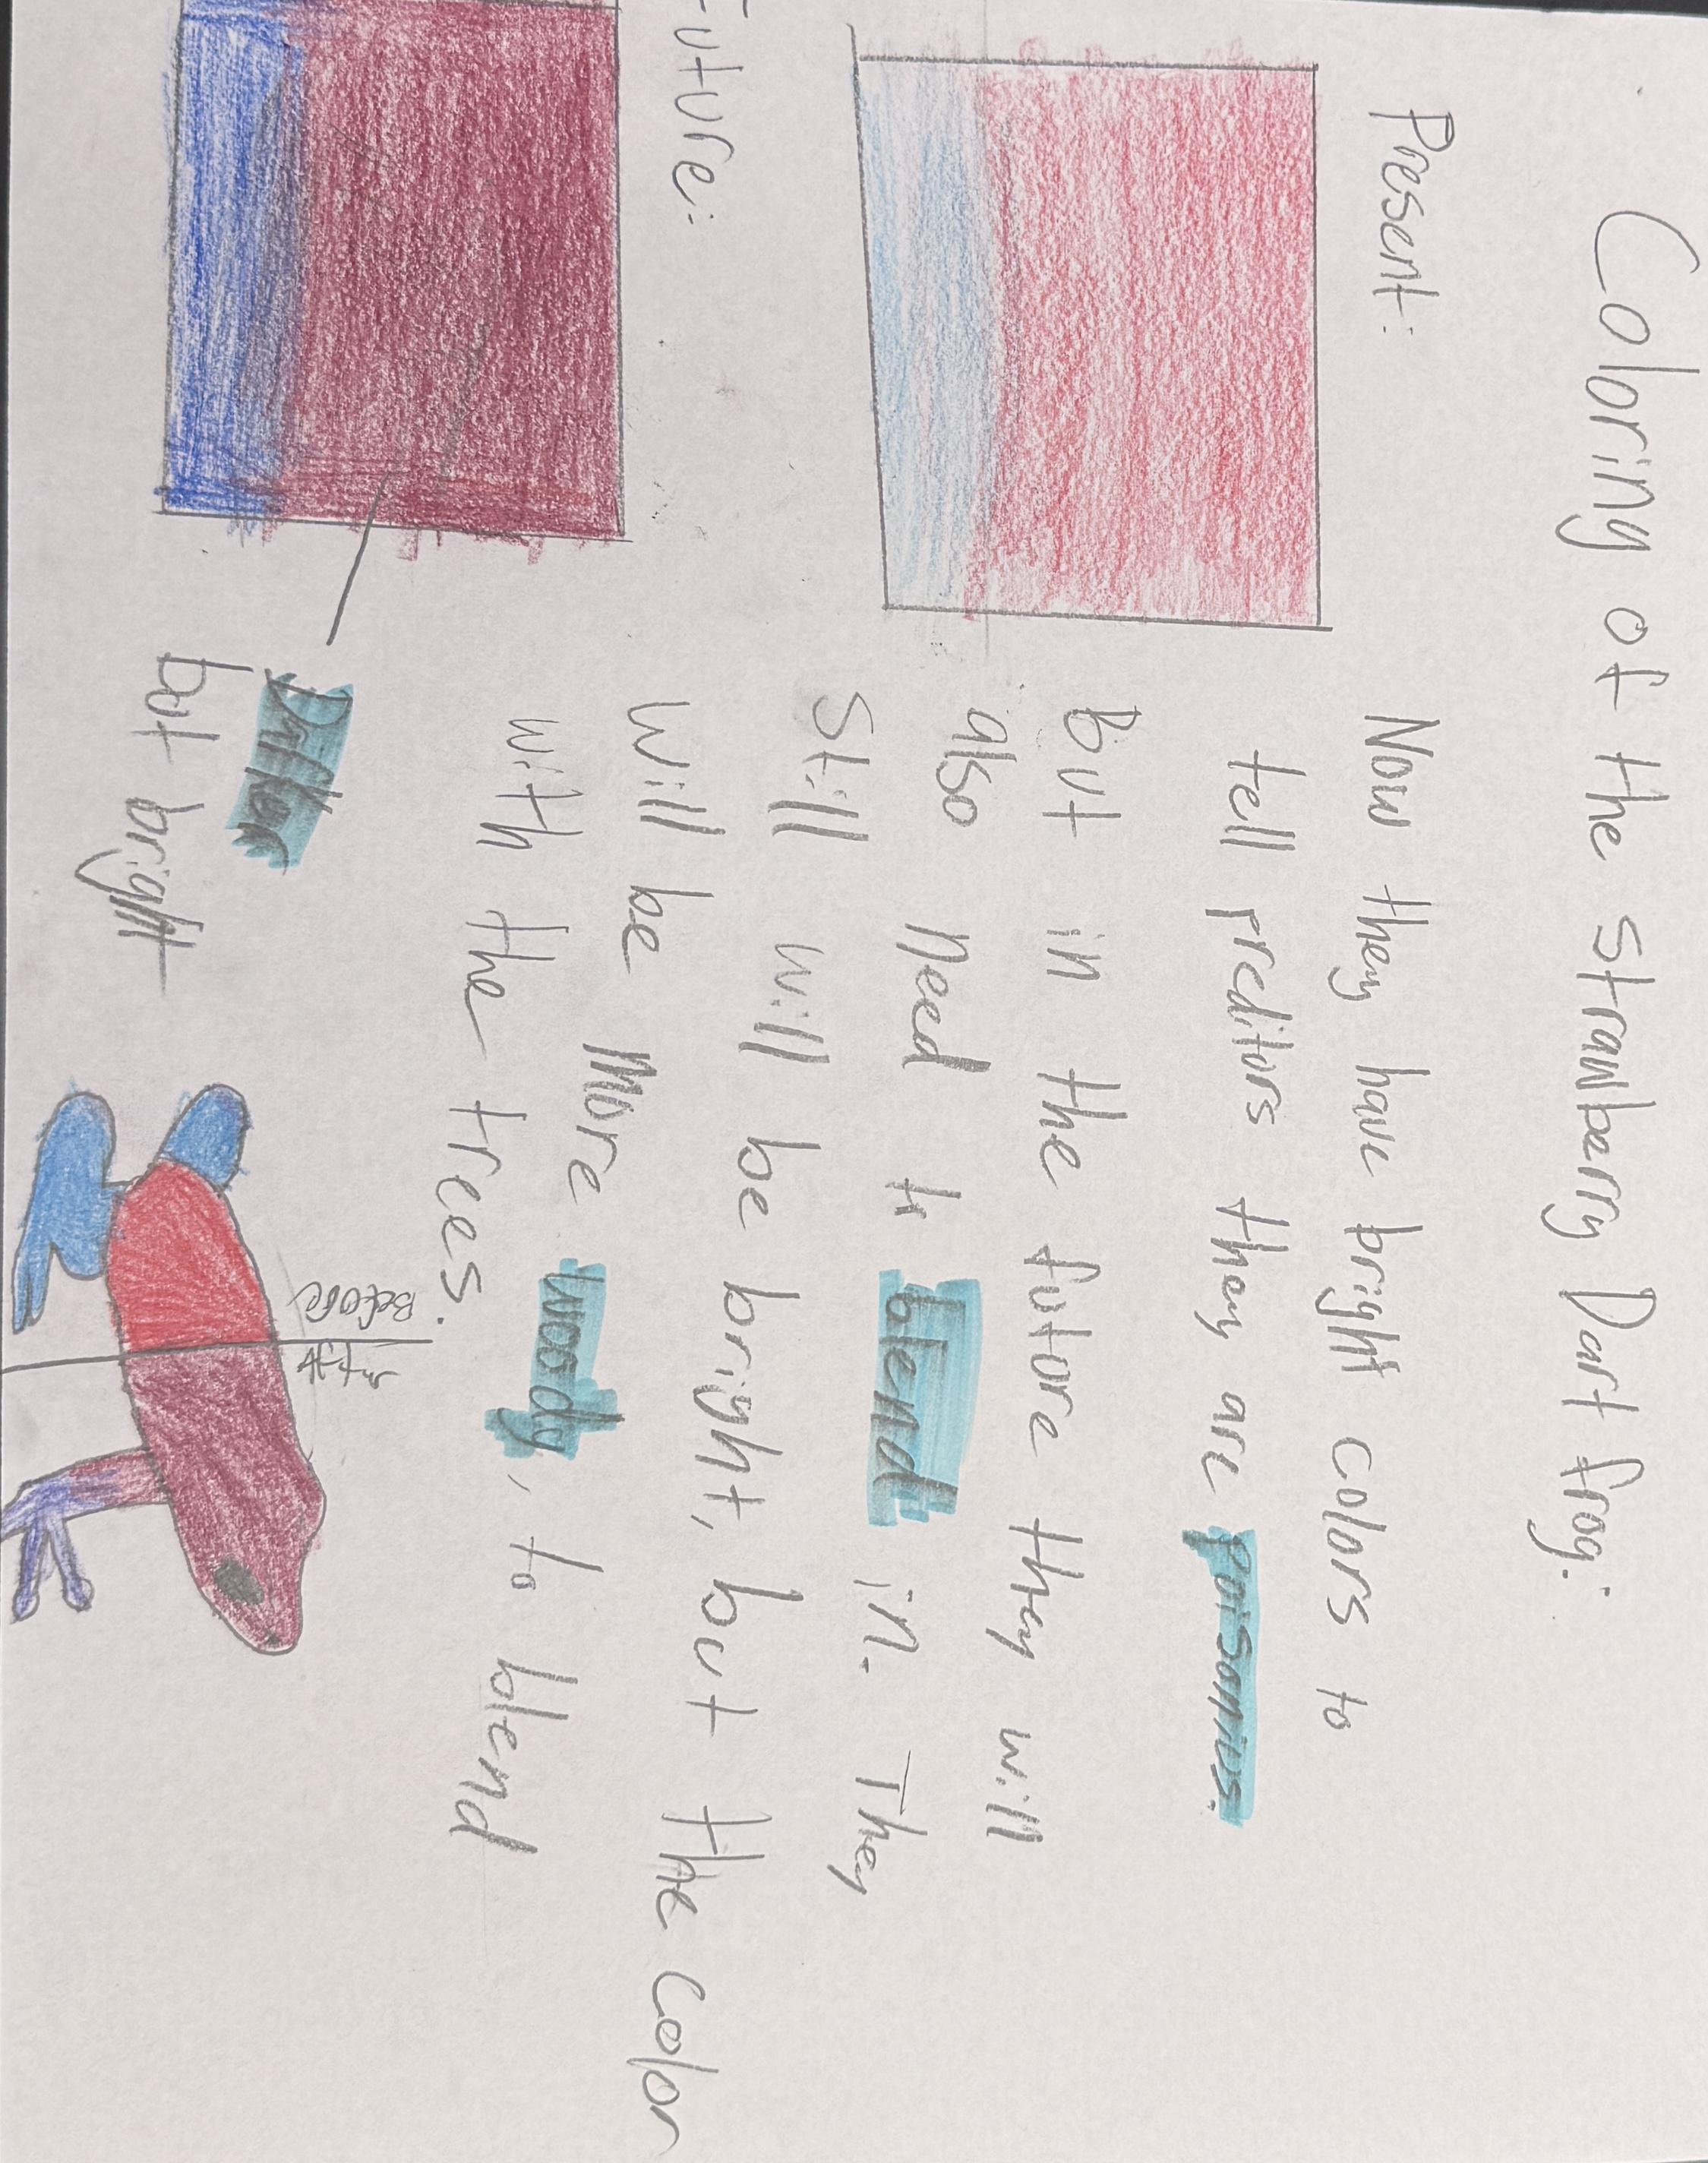 Coloring of the strawberry Dart frog:
Present:
Now they have bright colors to
tell preditors they are poisonius.
But in the future they will
also need to blend in. They
still will be bright, but the color
will be more woody, to blend
with the trees.
Future:
Darker
but bright
Before
After